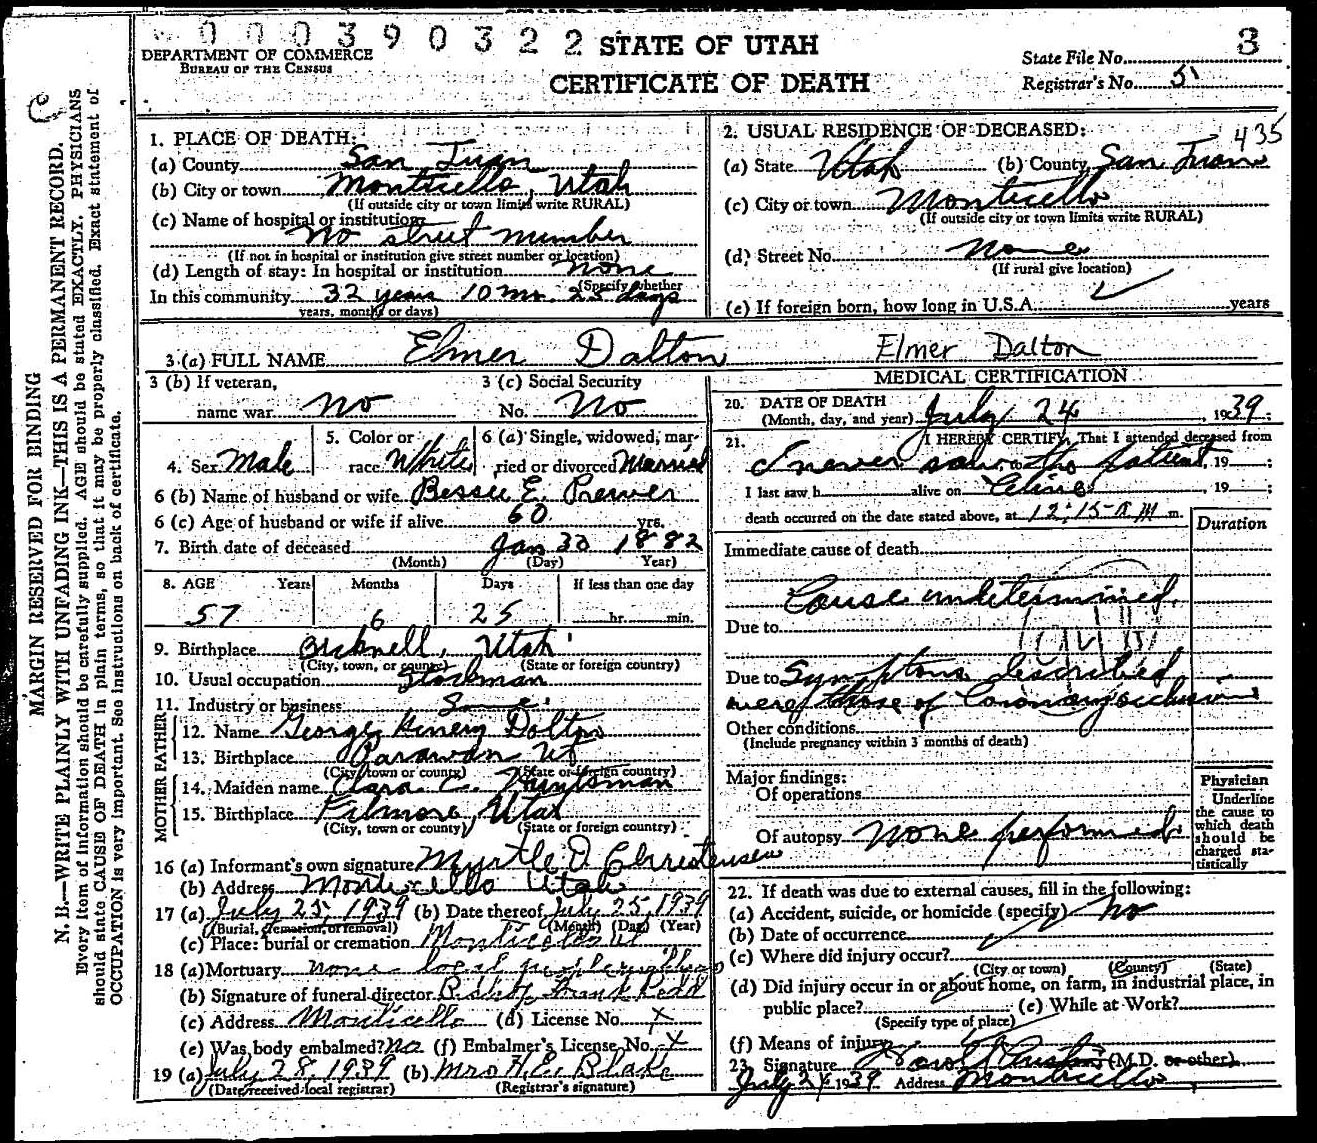 000390322
STATE OF UTAH
CERTIFICATE OF DEATH
DEPARTMENT OF COMMERCE
BUREAU OF THE CENSUS
State File No. 3
Registrar's No. 5
MARGIN RESERVED FOR BINDING
N. B.—WRITE PLAINLY WITH UNFADING INK—THIS IS A PERMANENT RECORD.
Every item of information should be carefully supplied. AGE should be stated EXACTLY. PHYSICIANS
should state CAUSE OF DEATH in plain terms, so that it may be properly classified. Exact statement of
OCCUPATION is very important. See instructions on back of certificate.
1. PLACE OF DEATH:
(a) County San Juan
(b) City or town Monticello, Utah
(If outside city or town limits write RURAL)
(c) Name of hospital or institution:
No street number
(If not in hospital or institution give street number or location)
(d) Length of stay: In hospital or institution none
(Specify whether
In this community 32 years 10 mo. 25 days
years, months or days)
2. USUAL RESIDENCE OF DECEASED:
435
(a) State Utah (b) County San Juan
(c) City or town Monticello
(If outside city or town limits write RURAL)
(d) Street No. None
(If rural give location)
(e) If foreign born, how long in U.S.A. years
3 (a) FULL NAME Elmer Dalton Elmer Dalton
3 (b) If veteran,
name war No
3 (c) Social Security
No. No
4. Sex Male
5. Color or
race White
6 (a) Single, widowed, mar-
ried or divorced Married
6 (b) Name of husband or wife Bessie E. Prewer
6 (c) Age of husband or wife if alive 60 yrs.
7. Birth date of deceased Jan 30 1882
(Month) (Day) Year)
8. AGE Years Months Days If less than one day
57 6 25 hr. min.
9. Birthplace Bicknell, Utah
(City, town, or county) (State or foreign country)
10. Usual occupation Stockman
11. Industry or business Same
FATHER
12. Name George Henery Dalton
13. Birthplace Parawan Ut
(City, town or county) (State or foreign country)
MOTHER
14. Maiden name Clara C. Huntsman
15. Birthplace Filmore, Utah
(City, town or county) (State or foreign country)
16 (a) Informant's own signature Myrtle D. Christensen
(b) Address Monticello Utah
17 (a) July 25, 1939 (b) Date thereof July 25, 1939
(Burial, cremation, or removal) (Month) (Day) (Year)
(c) Place: burial or cremation Monticello Ut
18 (a) Mortuary none - local people
(b) Signature of funeral director Bishop Frank Redd
(c) Address Monticello (d) License No. x
(e) Was body embalmed? No (f) Embalmer's License No. x
19 (a) July 28, 1939 (b) Mrs H. E. Blake
(Date received local registrar) (Registrar's signature)
MEDICAL CERTIFICATION
20. DATE OF DEATH
(Month, day, and year) July 24, 1939;
21. I HEREBY CERTIFY, That I attended deceased from
I never saw the patient, 19 ;
I last saw h alive on alive, 19 ;
death occurred on the date stated above, at 12:15 A M m.
Duration
Immediate cause of death
Cause undetermined.
Due to
Due to Symptoms described
were those of Coronary occlusion
Other conditions
(Include pregnancy within 3 months of death)
Major findings:
Of operations
Of autopsy none performed
Physician
Underline
the cause to
which death
should be
charged sta-
tistically
22. If death was due to external causes, fill in the following:
(a) Accident, suicide, or homicide (specify) No
(b) Date of occurrence
(c) Where did injury occur?
(City or town) (County) (State)
(d) Did injury occur in or about home, on farm, in industrial place, in
public place? (e) While at Work?
(Specify type of place)
(f) Means of injury
23. Signature (M.D. or other)
July 24 1939 Address Monticello